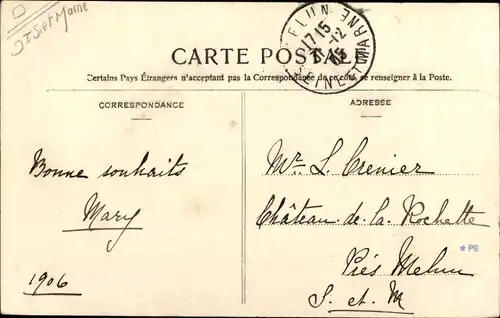 S et Marne
MELUN
17 15
-12
05
SEINE ET MARNE
CARTE POSTALE
Certains Pays Étrangers n'acceptant pas la Correspondance de ce coté, se renseigner à la Poste.
CORRESPONDANCE
Bonne souhaits
Mary
1906
ADRESSE
Mr. L. Crenier
Château de la Rochette
Près Melun
S. et. M
*PB